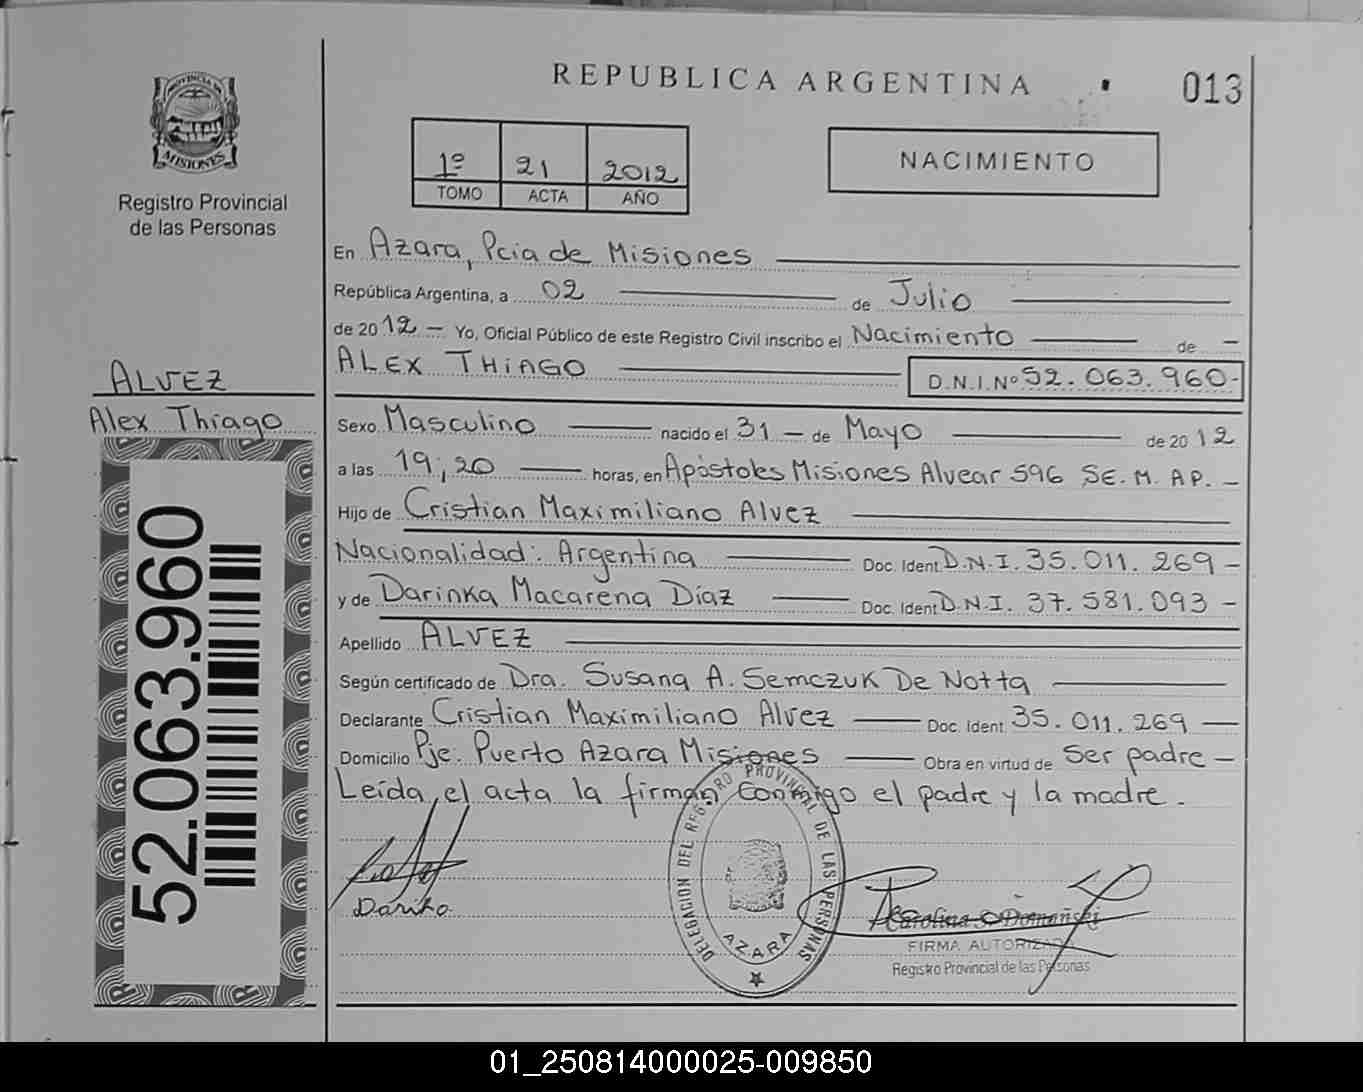 PROVINCIA DE
MISIONES
Registro Provincial
de las Personas
ALVEZ
Alex Thiago
52.063.960
REPUBLICA ARGENTINA
013
1º 21 2012
TOMO ACTA AÑO
NACIMIENTO
En Azara, Pcia de Misiones
República Argentina, a 02 de Julio
de 2012 - Yo, Oficial Público de este Registro Civil inscribo el Nacimiento de -
ALEX THIAGO D.N.I.Nº 52.063.960-
Sexo Masculino nacido el 31 - de Mayo de 2012
a las 19;20 horas, en Apóstoles Misiones Alvear 596 SE.M.AP. -
Hijo de Cristian Maximiliano Alvez
Nacionalidad: Argentina Doc. Ident D.N.I. 35.011.269 -
y de Darinka Macarena Díaz Doc. Ident D.N.I. 37.581.093 -
Apellido ALVEZ
Según certificado de Dra. Susana A. Semczuk De Notta
Declarante Cristian Maximiliano Alvez Doc. Ident 35.011.269
Domicilio Pje: Puerto Azara Misiones Obra en virtud de Ser padre -
Leída, el acta la firman conmigo el padre y la madre.
DELEGACION DEL REGISTRO PROVINCIAL DE LAS PERSONAS
AZARA
Carolina S. Domañski
FIRMA AUTORIZADA
Registro Provincial de las Personas
01_250814000025-009850